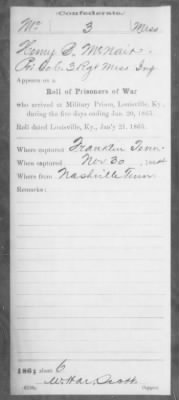 Confederate.
Mc 3 Miss
Henry S. McNair
Pvt Co. C. 3 Regt Miss Inf
Appears on a
Roll of Prisoners of War
who arrived at Military Prison, Louisville, Ky.,
during the five days ending Jan. 20, 1865.
Roll dated Louisville, Ky., Jan'y 21, 1865.
Where captured Franklin Tenn.
When captured Nov 30, 1864
Where from Nashville Tenn
Remarks:
1864 sheet 6
Copyist.